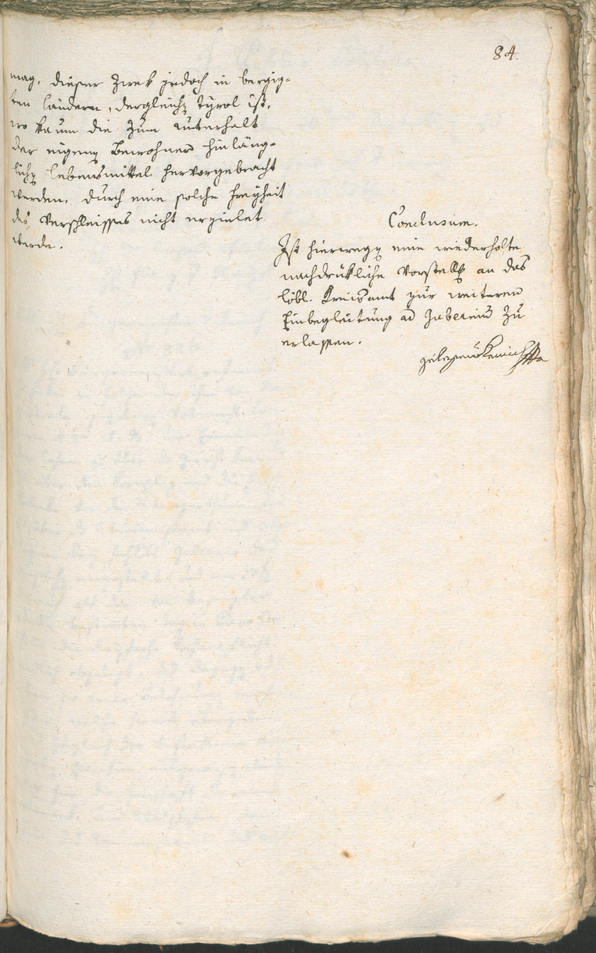 84.
mag, dieser Zwek jedoch in bergig-
ten Ländern, dergleichen Tyrol ist,
wo kaum die zum Unterhalt
der eigenen Bewohner hinläng-
lichen Lebensmittel hervorgebracht
werden, durch eine solche Freyheit
des Verschleisses nicht erzielet
werde.
Conclusum.
Ist hierwegen eine wiederholte
nachdrükliche Vorstellung an das
löbl. Kreisamt zur weiteren
Einbegleitung ad Gubernium zu
erlassen.